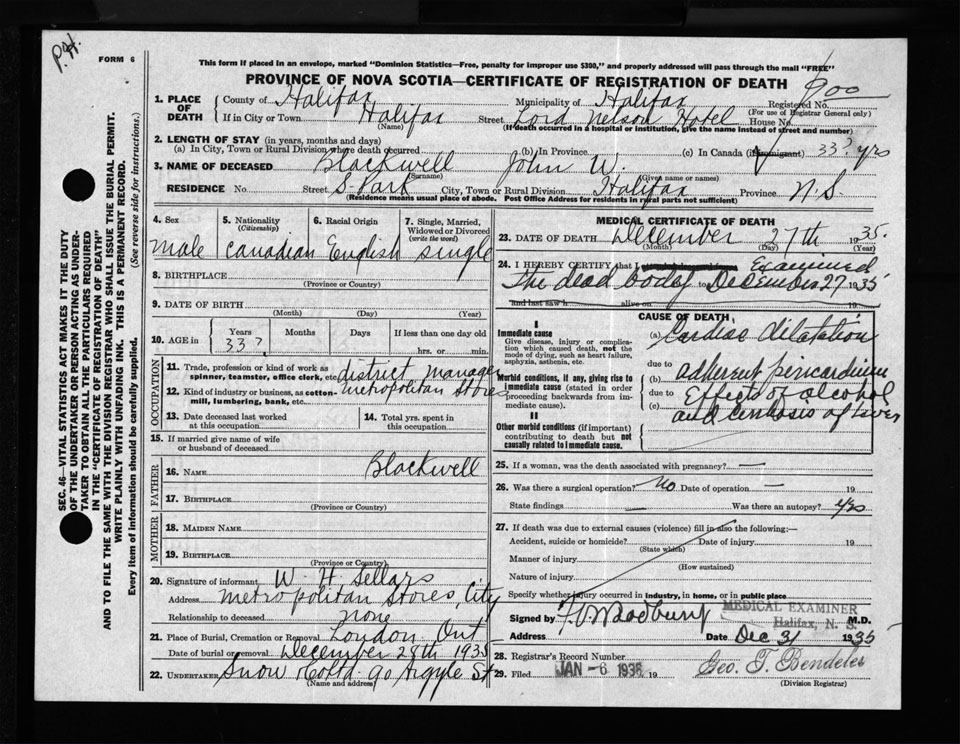 P.H.
FORM 6
This form if placed in an envelope, marked "Dominion Statistics—Free, penalty for improper use $300," and properly addressed will pass through the mail "FREE"
PROVINCE OF NOVA SCOTIA—CERTIFICATE OF REGISTRATION OF DEATH
900
1. PLACE OF DEATH
County of Halifax Municipality of Halifax Registered No.
(For use of Registrar General only)
If in City or Town Halifax Street Lord Nelson Hotel House No.
(Name) (If death occurred in a hospital or institution, give the name instead of street and number)
2. LENGTH OF STAY (in years, months and days)
(a) In City, Town or Rural Division where death occurred (b) In Province (c) In Canada (if immigrant) 33? yrs
3. NAME OF DECEASED Blackwell John W.
(Surname) (Given name or names)
RESIDENCE No. Street S. Park City, Town or Rural Division Halifax Province N.S.
(Residence means usual place of abode. Post Office Address for residents in rural parts not sufficient)
4. Sex 5. Nationality (Citizenship) 6. Racial Origin 7. Single, Married, Widowed or Divorced (write the word)
male Canadian English single
8. BIRTHPLACE
(Province or Country)
9. DATE OF BIRTH
(Month) (Day) (Year)
10. AGE in Years Months Days If less than one day old
33? hrs. or min.
OCCUPATION
11. Trade, profession or kind of work as spinner, teamster, office clerk, etc. district manager
12. Kind of industry or business, as cotton-mill, lumbering, bank, etc. metropolitan Stores
13. Date deceased last worked at this occupation
14. Total yrs. spent in this occupation
15. If married give name of wife or husband of deceased
FATHER
16. NAME Blackwell
17. BIRTHPLACE
(Province or Country)
MOTHER
18. MAIDEN NAME
19. BIRTHPLACE
(Province or Country)
20. Signature of informant W. H. Sellars
Address metropolitan Stores, City
Relationship to deceased none
21. Place of Burial, Cremation or Removal London Ont
Date of burial or removal December 28th 1935
22. UNDERTAKER Snow & Co Ltd. 90 Argyle St
(Name and address)
MEDICAL CERTIFICATE OF DEATH
23. DATE OF DEATH December 27th 1935.
(Month) (Day) (Year)
24. I HEREBY CERTIFY that I Examined
The dead body to December 27 1935
and last saw h alive on 19
CAUSE OF DEATH
I
Immediate cause
Give disease, injury or complication which caused death, not the mode of dying, such as heart failure, asphyxia, asthenia, etc.
(a) Cardiac dilatation
due to
Morbid conditions, if any, giving rise to immediate cause (stated in order proceeding backwards from immediate cause).
(b) adherent pericardium
due to
(c) Effects of alcohol
and cirrhosis of liver
II
Other morbid conditions (if important) contributing to death but not causally related to immediate cause.
25. If a woman, was the death associated with pregnancy? —
26. Was there a surgical operation? No Date of operation — 19
State findings — Was there an autopsy? yes
27. If death was due to external causes (violence) fill in also the following:—
Accident, suicide or homicide? Date of injury 19
(State which)
Manner of injury
(How sustained)
Nature of injury
Specify whether injury occurred in industry, in home, or in public place
MEDICAL EXAMINER
Halifax, N. S.
Signed by M.D.
Address Date Dec 31 1935
28. Registrar's Record Number
29. Filed JAN -6 1936 19 Geo. T. Bendeler
(Division Registrar)
SEC. 46—VITAL STATISTICS ACT MAKES IT THE DUTY
OF THE UNDERTAKER OR PERSON ACTING AS UNDER-
TAKER TO OBTAIN ALL THE PARTICULARS REQUIRED
IN THE "CERTIFICATE OF REGISTRATION OF DEATH"
AND TO FILE THE SAME WITH THE DIVISION REGISTRAR WHO SHALL ISSUE THE BURIAL PERMIT.
WRITE PLAINLY WITH UNFADING INK. THIS IS A PERMANENT RECORD.
Every item of information should be carefully supplied. (See reverse side for instructions.)